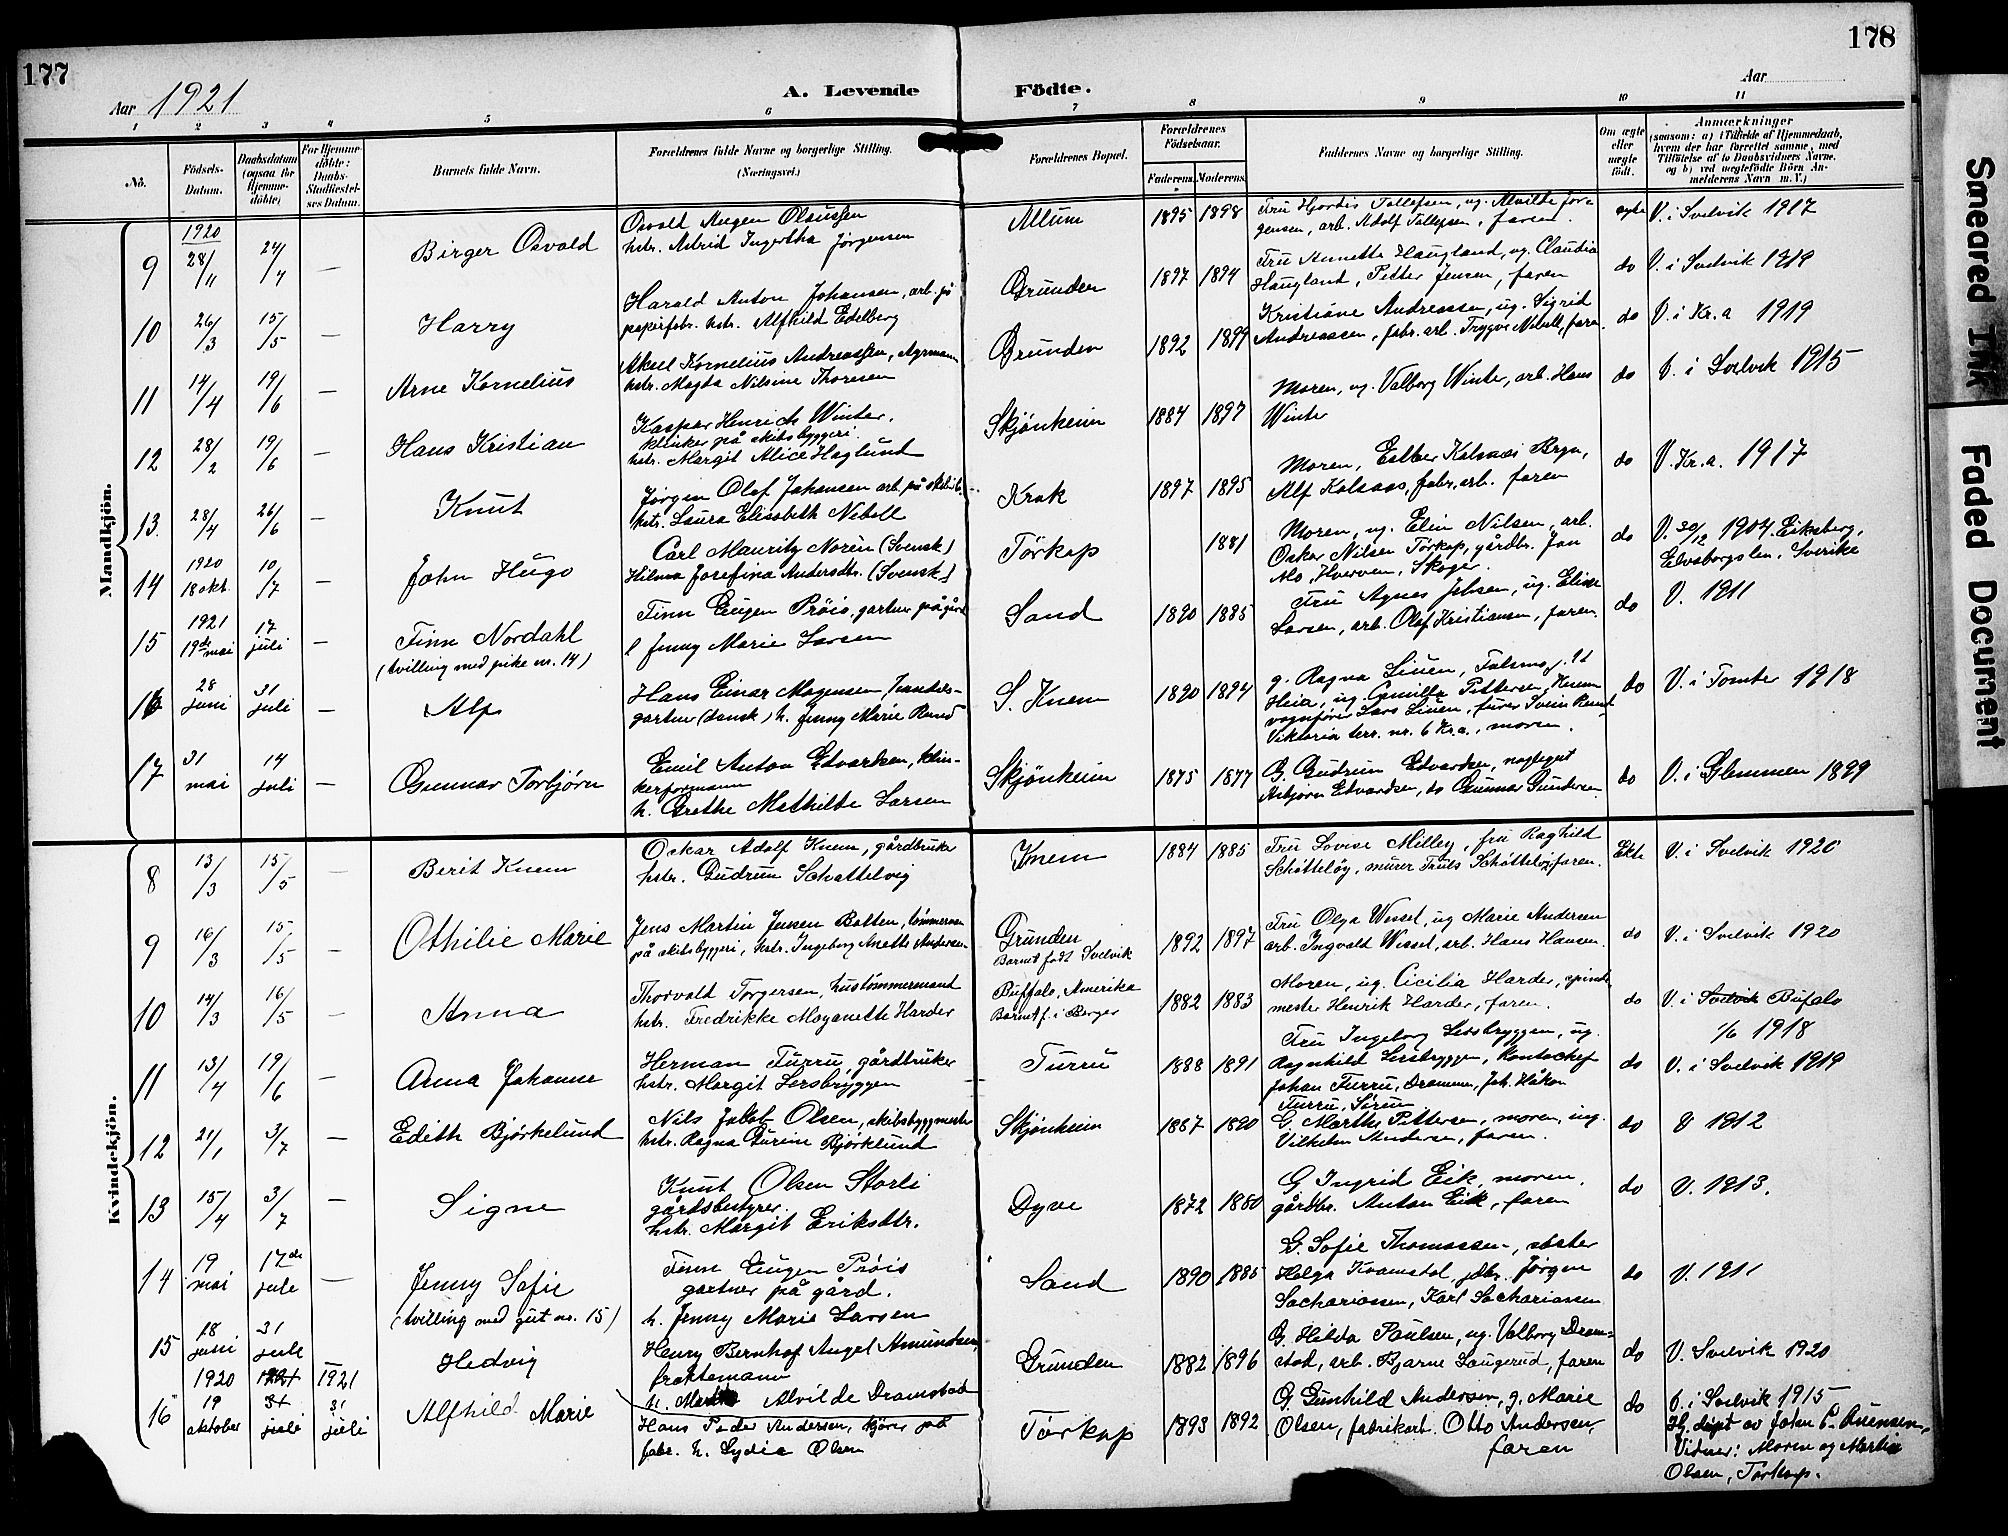 177
178
Aar 1921
A. Levende Födte.
Aar
1 2 3 4 5 6 7 8 9 10 11
No.
Födsels-Datum.
Daabsdatum (ogsaa for Hjemmedöbte)
For Hjemmedöbte: Daabs-Stadfæstelses Datum.
Barnets fulde Navn.
Forældrenes fulde Navne og borgerlige Stilling. (Næringsvei.)
Forældrenes Bopæl.
Forældrenes Fødselsaar.
Faderens. Moderens.
Faddernes Navne og borgerlige Stilling.
Om ægte eller uægte födt.
Anmærkninger
(saasom: a) i Tilfælde af Hjemmedaab, hvem der har forrettet samme, med Tilføielse af to Daabsvidners Navne, og b) ved uægtefödte Börn Anmelderens Navn m. V.)
Mandkjön.
9 1920 28/11 24/4 — Birger Osvald
Osvald Augen Olaussen
hstr. Astrid Ingertha Jørgensen
Allum 1895 1898
Fru Hjordis Tollefsen, ug. Alvilde Jør-
gensen, arb. Adolf Tollefsen, faren.
egte V. i Svelvik 1917
10 26/3 15/5 — Harry
Harald Anton Johansen, arb. på
papirfabr. hstr. Alfhild Edelberg
Grunden 1897 1894
Fru Annette Haugland, ug. Claudia
Haugland, Petter Jensen, faren
do V. i Svelvik 1919
11 14/4 19/6 — Arne Kornelius
Aksel Kornelius Andreassen,
hstr. Magda Nilsine Thoresen
Grunden 1892 1899
Kristiane Andreassen, ug. Sigrid
Andreassen, fabr. arb. Trygve Nebell, faren.
do V. i Kr.a 1919
12 28/2 19/6 — Hans Kristian
Kaspar Henrich Winter,
klinker på skibsbyggeri.
hstr. Margit Alice Haglund
Skjønheim 1884 1897
Moren, ug. Valborg Winter, arb. Hans
Winter
do V. i Svelvik 1915
13. 28/4 26/6 — Knut
Jørgen Olaf Johansen arb. på
hstr. Laura Elisabeth Nebell
Krok 1897 1895
Moren, Esther Kolsaas Bryn,
Alf Kolsaas, fabr. arb. faren
do V. Kr.a. 1917
14 1920 18 okt. 10/7 — John Hugo
Carl Mauritz Norèn (Svensk)
Hilma Josefina Andersdtr. (Svensk)
Törkop 1881
Moren, ug. Elin Nilsen, arb.
Oskar Nilsen Törkop, gårdbr. Jon
Mo, Hverven, Skoger.
do V. 30/12 1904. Eiksberg,
Elvsborgslen, Sverike
15 1921 19de mai 17 juli — Finn Nordahl
(tvilling med pike nr. 14)
Finn Eugen Prøis, gartner på gård
Jenny Marie Larsen
Sand 1890 1885
Fru Agnes Jebsen, ug. Elise
Larsen, arb. Olaf Kristiansen, faren.
do V. 1911
16 28 juni 31 juli — Alf
Hans Einar Mogensen handels-
gartner (dansk) h. Jenny Marie Rund
S. Knem 1890 1894
g. Ragna Linen,
Heia, ug. Camilla Pettersen, Knem
vognfører Lars Linen, furer Svein Rund
Viktoria terr. nr. 6 Kr.a., moren.
do V. i Tomter 1918
17 31 mai 14 juli — Gunnar Torbjørn
Emil Anton Edvardsen, klin-
kerformann
h. Grethe Mathilde Larsen
Skjønheim 1875 1877
G. Gudrun Edvardsen,
Asbjørn Edvardsen, do Gunnar Gundersen
do V. i Glemmen 1899
Kvindekjön.
8 13/3 15/5 — Berit Knem
Oskar Adolf Knem, gårdbruker
hstr. Gudrun Schøttelvig
Knem 1884 1885
Fru Lovise Milley, fru Raghild
murer Truls faren.
Ekte V. i Svelvik 1920
9 16/3 15/5 — Othilie Marie
Jens Martin Jensen Bolten, tømmerm.
på skibsbyggeri, hstr. Ingeborg Anette Andersen
Grunden
Barnet født Svelvik 1892 1897
Fru Olga Wessel, ug Marie Andersen
arb. Ingvald Wessel, arb. Hans Hansen.
do V. i Svelvik 1920
10 14/3 16/5 — Anna
Thorvald Torgersen, hustømmermand
hstr. Fredrikke Moganette Harder
Buffalo, Amerika
Barnet f. i Berger 1882 1883
Moren, ug. Cicilia Harder, spinde-
mester Henrik Harder, faren.
do V. i Svelvik Bufalo
1/6 1918
11 13/4 19/6 — Anna Johanne
Herman Furru, gårdbruker
hstr. Margit Lersbryggen
Furru 1888 1891
Fru Ingeborg Lersbryggen, ug.
Ragnhild Lersbryggen, kontorchef
Johan Furru, Drammen, Joh. Håkon
Furru,
do V. i Svelvik 1919
12 21/1 3/7 — Edith Bjørkelund
Nils Jakob Olsen, skibsbyggmester
hstr. Ragna Gurine Bjørklund
Skjønheim 1887 1890
G. Marthe Pettersen, moren, ug.
Vilhelm Andersen, faren.
do V 1912
13 15/4 3/7 — Signe
Knut Olsen Storli
gårdsbestyrer.
hstr. Margit Eriksdtr.
Dyve 1872 1880
G Ingrid Eik, moren,
gårdbr. Anton Eik, faren
do V. 1913.
14 19 mai 17de jule — Jenny Sofie
(tvilling med gut nr. 15)
Finn Eugen Prøis
gartner på gård.
h. Jenny Marie Larsen
Sand 1890 1885
G. Sofie Thomassen, søster
Helga Kvamstol, gdbr. Jørgen
Sachariassen, Karl Sachariassen
do V. 1911
15 18 juni 31 jule — Hedvig
Henry Bernhof Angel Amundsen
fraktemann
h. Alvilde Dramstad
Grunden 1882 1896
G. Hilda Paulsen, ug. Valborg Dram-
stad, arb. Bjarne Laugerud, faren
do V. Svelvik 1920
16 1920 19 oktober 1921 31 juli 1921 31 juli Alfhild Marie
Hans Peder Andersen, kjører på
fabr. h. Lydia Olsen
Tørkop 1893 1892
G. Gunhild Andersen, g. Marie
Olsen, fabrikarb. Otto Andersen,
faren
do V. i Svelvik 1915
Hj. døpt av John L. Svensen,
Vidner: Moren og Martin
Olsen, Tørkop.
Smeared Ink
Faded Document